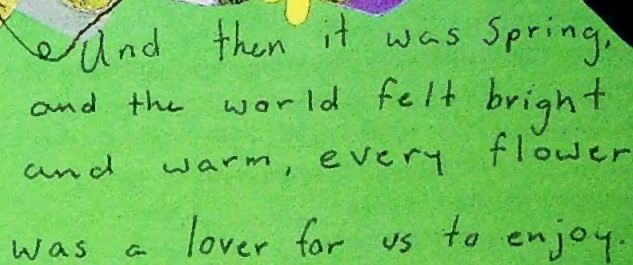 And then it was Spring,
and the world felt bright
and warm, every flower
was a lover for us to enjoy.